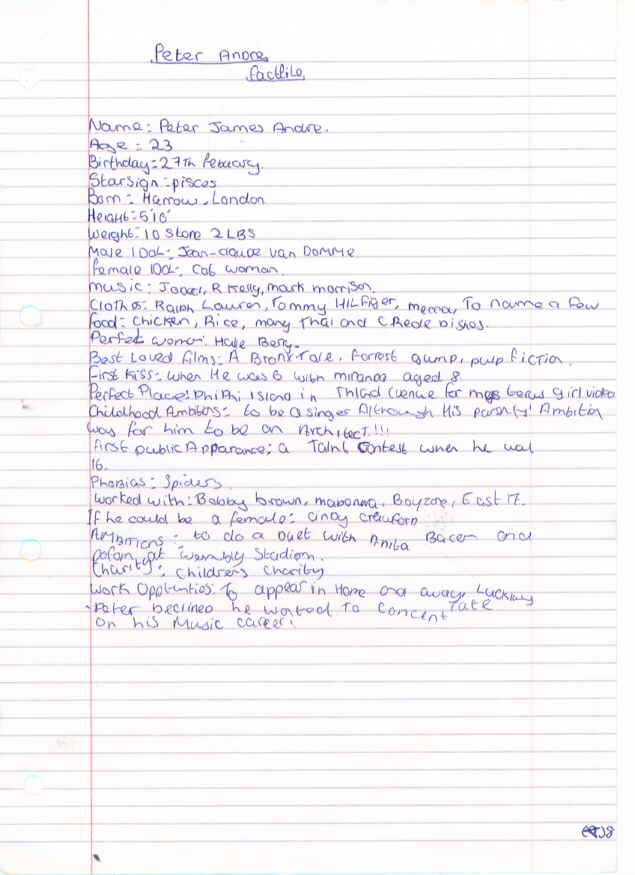 Peter Andre
factfile
Name: Peter James Andre.
Age: 23
Birthday: 27th febuary.
Starsign: pisces
Born: Harrow, London
Height: 5'10"
Weight: 10 Stone 2 LBS
Male IDOL: Jean-claude van DOMME
female IDOL: Cat woman.
Music: Jodeci, R Kelly, mark morrison.
Clothes: Ralph Lauren, Tommy HILFiger, mecca, To name a few
food: Chicken, Rice, many Thai and CReole Dishes.
Perfect women: Halle Berry.
Best Loved films: A Bronx Tale, forrest gump, pulp fiction.
first Kiss: when He was 6 with miranda aged 8
Perfect Place: Phi Phi Island in Thiland (venue for mys terius girl video
Childhood Ambitions: to be a singer Although His parents' Ambition
was for him to be an ArchitecT.!!!
first public Apparance: a Talnt Contest when he was
16.
Phobias: Spiders
worked with: Bobby brown, madonna, Boyzone, East 17.
If he could be a female: cindy crawford
AMBITIONS: to do a Duet with Anita Bacer and
at wembly Stadiom.
Charity: Childrens Charity
Work Oppttnties: To appear in Home and away, Luckiley
-Peter declined he wanted To concentTate
on his Music career!